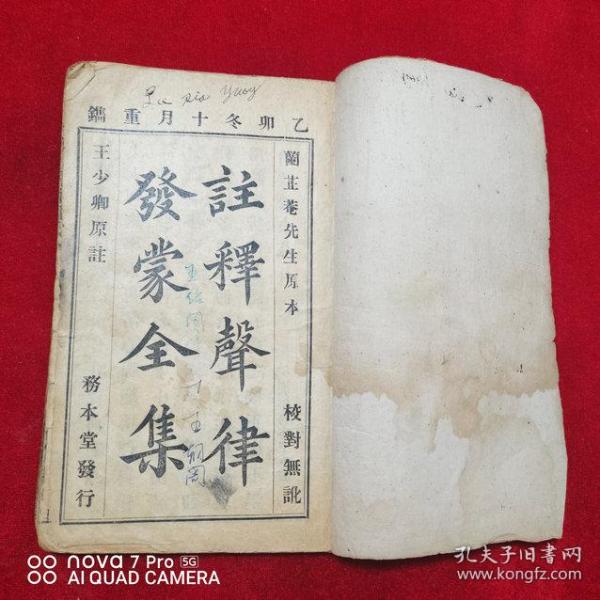 Lu Xia Yuoy
乙卯冬十月重鐫
蘭芷菴先生原本
校對無訛
註釋聲律
發蒙全集
王少卿原註
務本堂發行
1
nova 7 Pro 5G
AI QUAD CAMERA
孔夫子旧书网
www.kongfz.com